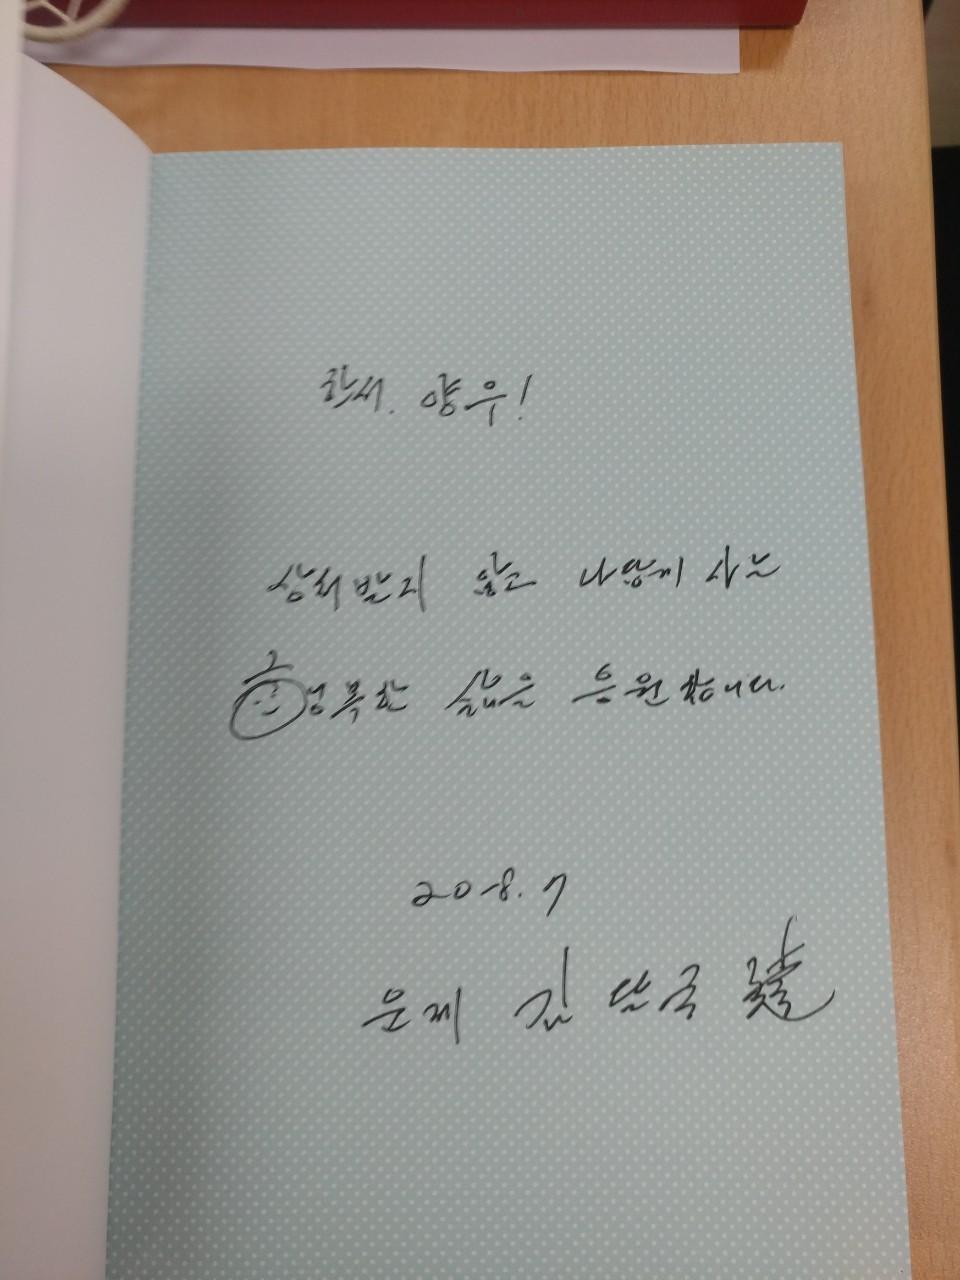 한서. 양우!
상처받지 않고 나답게 사는
행복한 삶을 응원합니다.
20 8. 7
운제 김달국